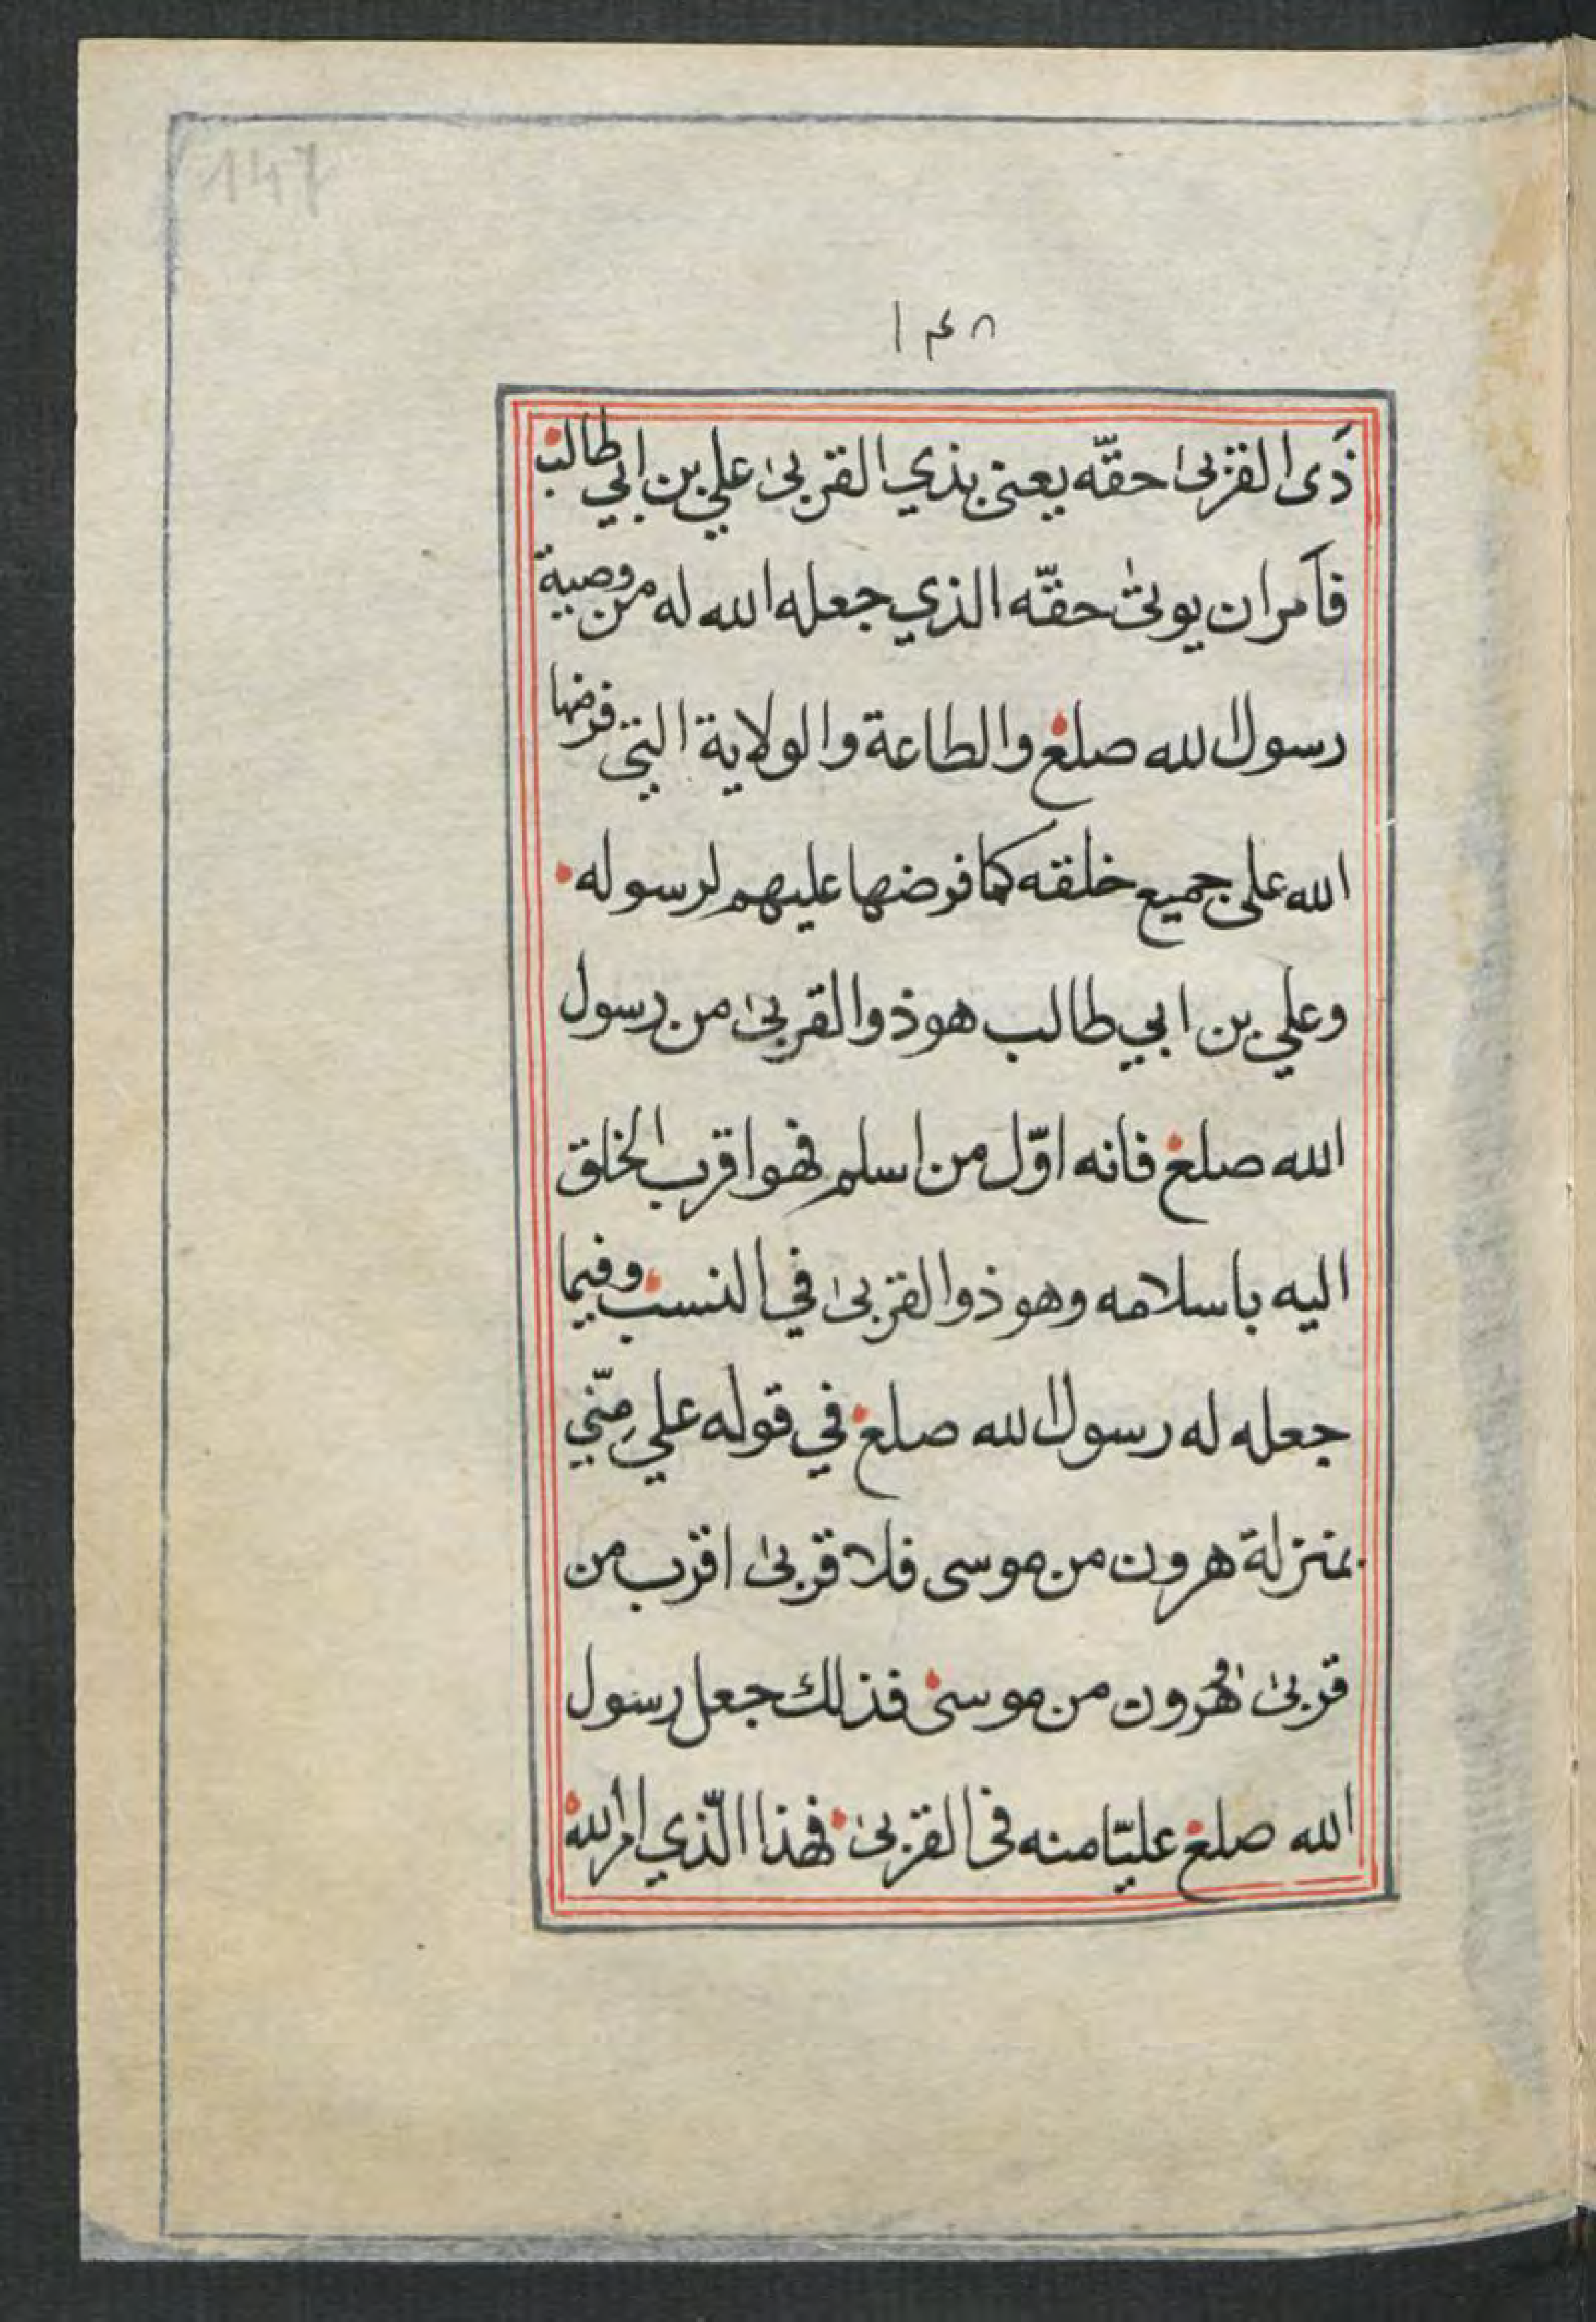 147
١٤٨
ذَى القربىٰ حقّه يعنى بذي القربىٰ علي بن ابي طالب
فآمر ان يوتىٰ حقّه الذي جعله الله له من وصية
رسول الله صلع والطاعة والولاية التي فرضها
الله على جميع خلقه كما فرضها عليهم لرسوله
وعلي بن ابي طالب هو ذو القربىٰ من رسول
الله صلع فانه اوّل من اسلم فهو اقرب الخلق
اليه باسلامه وهو ذو القربىٰ في النسب وفيما
جعله له رسول الله صلع في قوله علي مِنّي
بمنزلة هرون من موسى فلا قربىٰ اقرب من
قربىٰ هٰرون من موسىٰ فذلك جعل رسول
الله صلع عليّا منه فى القربىٰ فهذا الّذي امر الله